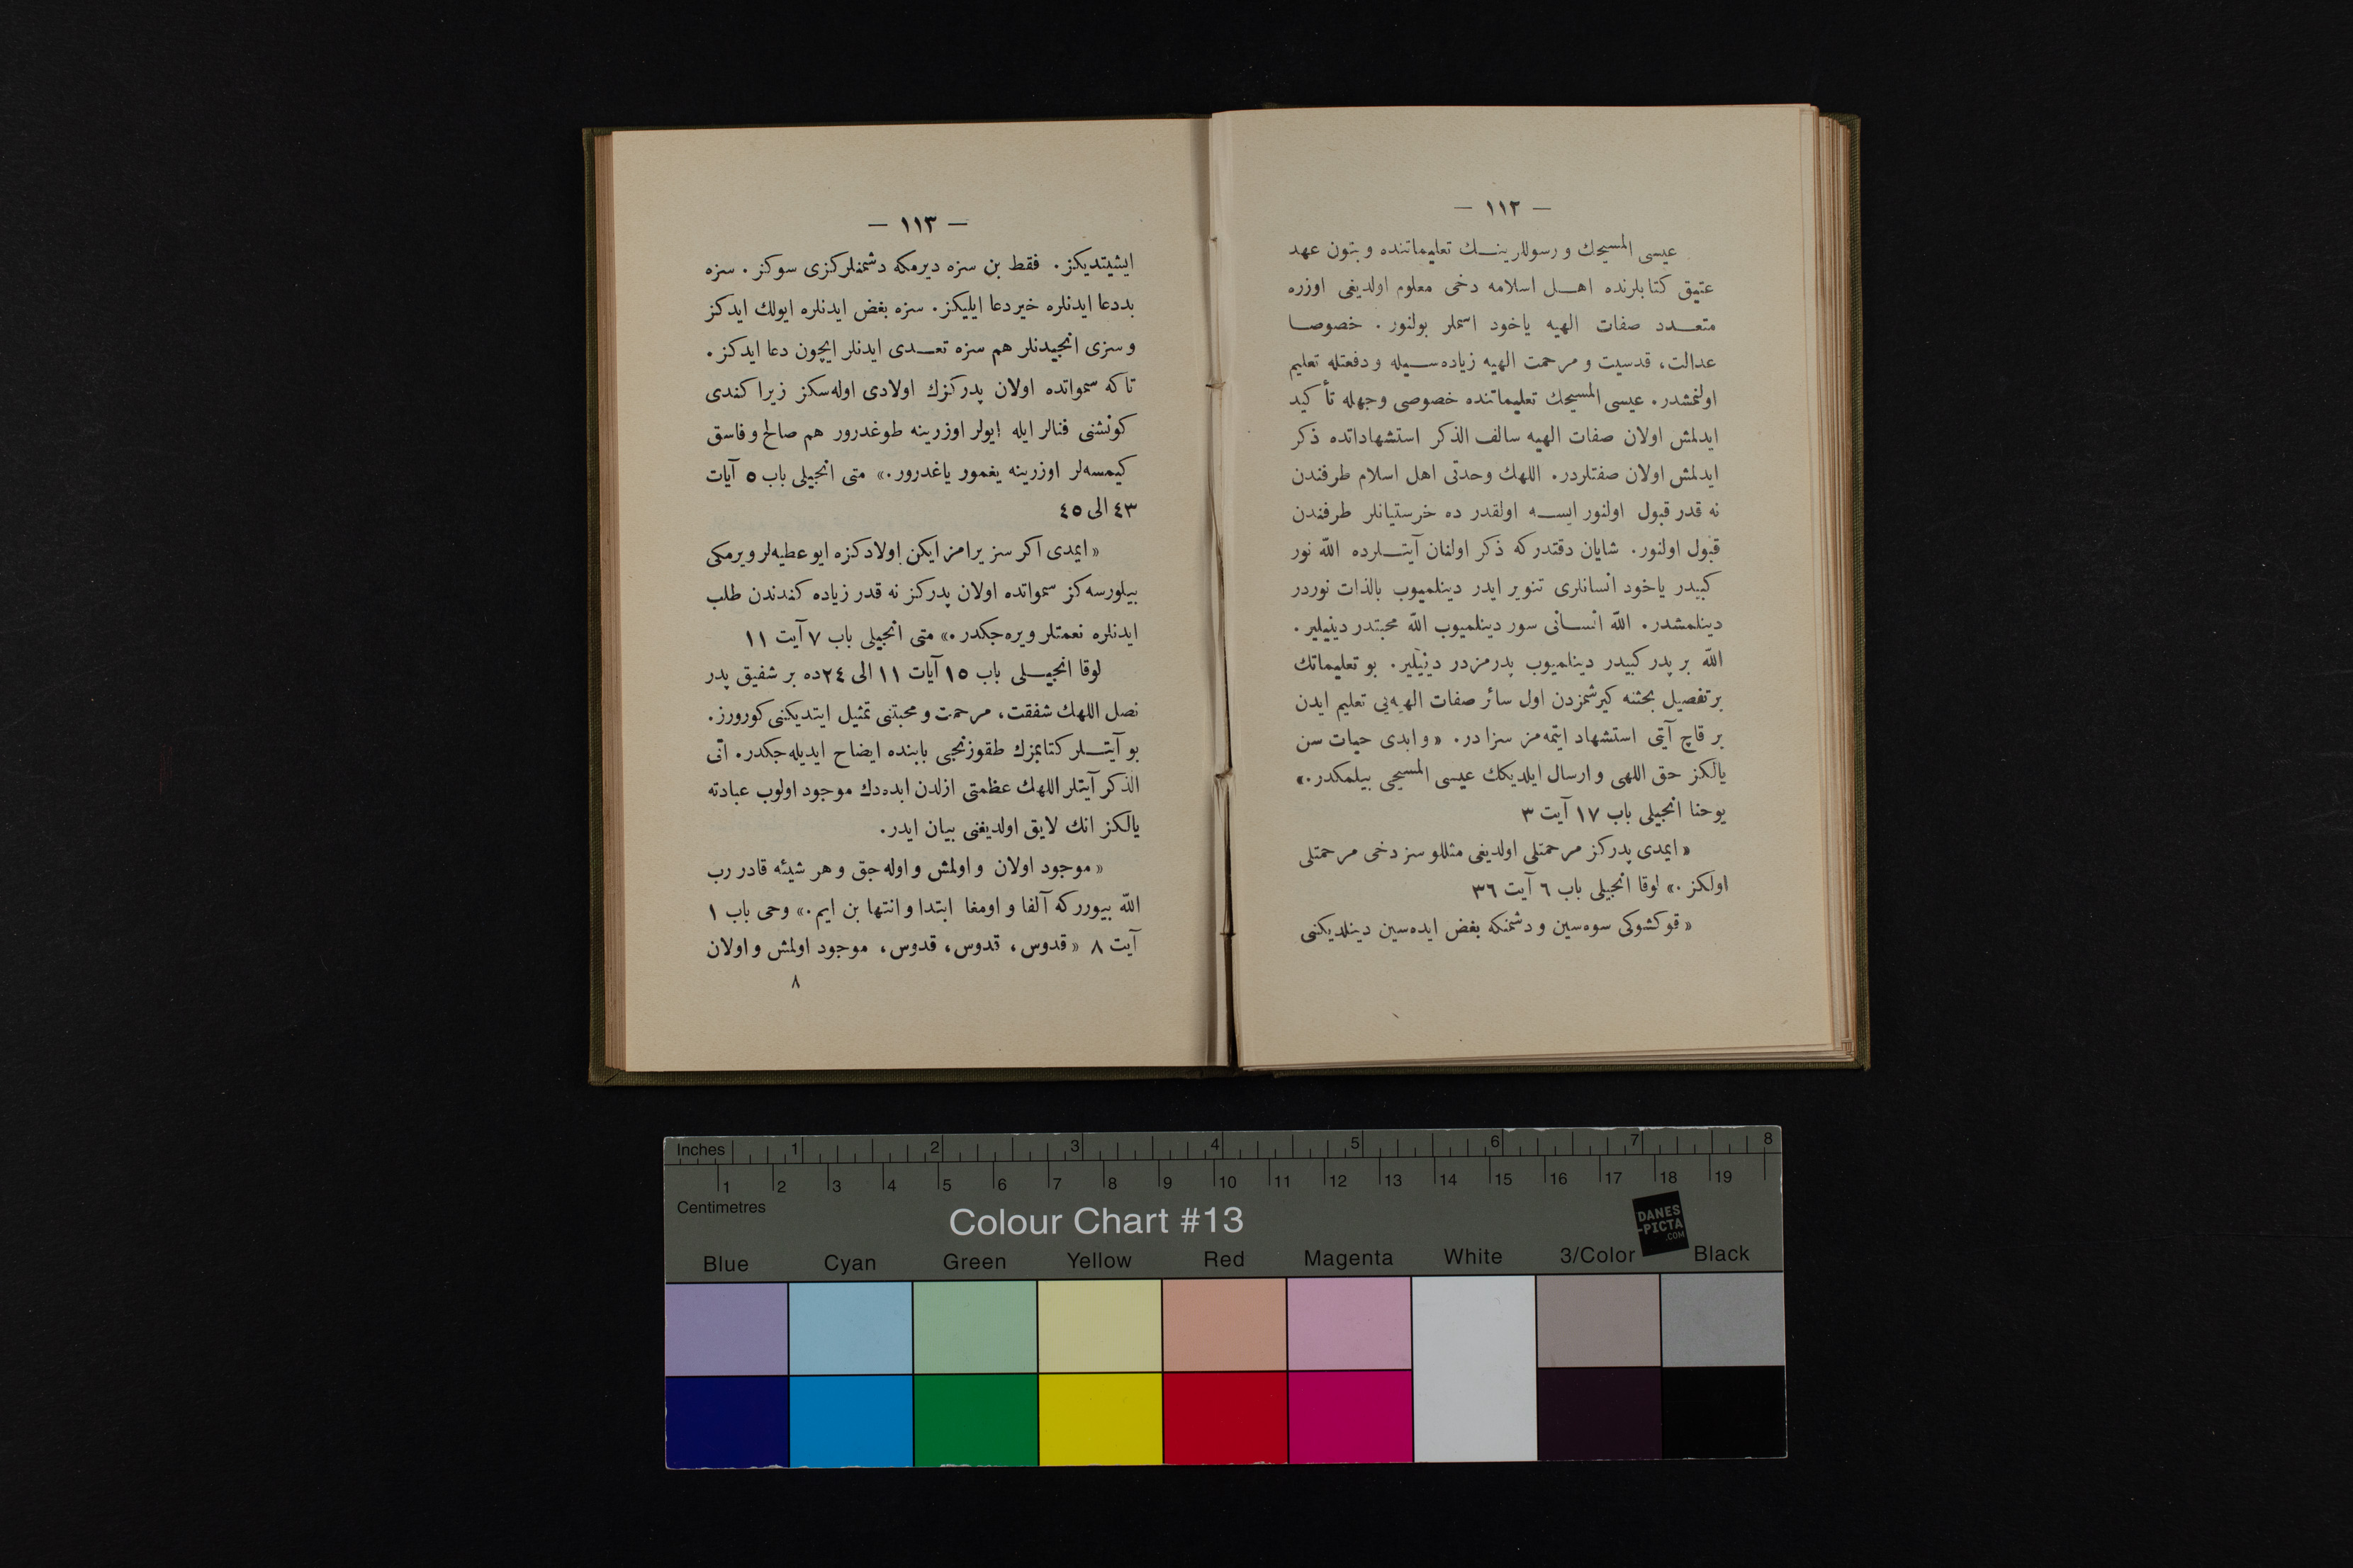 — ١١٢ —
عيسى المسيحك و رسوللرينك تعليماتنده و بتون عهد
عتيق كتابلرنده اهل اسلامه دخى معلوم اولديغى اوزره
متعدد صفات الهيه ياخود اسملر بولنور. خصوصا
عدالت، قدسيت و مرحمت الهيه زياده‌سيله و دفعتله تعليم
اولنمشدر. عيسى المسيحك تعليماتنده خصوصى وجهله تأكيد
ايدلمش اولان صفات الهيه سالف الذكر استشهاداتده ذكر
ايدلمش اولان صفتلردر. اللهك وحدتى اهل اسلام طرفندن
نه قدر قبول اولنور ايسه اولقدر ده خرستيانلر طرفندن
قبول اولنور. شايان دقتدركه ذكر اولنان آيتلرده اللّه نور
كبيدر ياخود انسانلرى تنوير ايدر دينلميوب بالذات نوردر
دينلمشدر. اللّه انسانى سور دينلميوب اللّه محبتدر دينيلير.
اللّه بر پدر كبيدر دينلميوب پدرمزدر دينيلير. بو تعليماتك
بر تفصيل بحثنه كيرشمزدن اول سائر صفات الهيه‌يى تعليم ايدن
بر قاچ آيتى استشهاد ايتمه‌مز سزادر. «و ابدى حيات سن
يالكز حق اللهى و ارسال ايلديكك عيسى المسيحى بيلمكدر.»
يوحنا انجيلى باب ١٧ آيت ٣
«ايمدى پدركز مرحمتلى اولديغى مثللو سز دخى مرحمتلى
اولكز.» لوقا انجيلى باب ٦ آيت ٣٦
«قوكشوكى سوه‌سين و دشمنكه بغض ايده‌سين دينلديكنى
— ١١٣ —
ايشيتديكز. فقط بن سزه ديرمكه دشمنلركزى سوكز. سزه
بددعا ايدنلره خير دعا ايليكز. سزه بغض ايدنلره ايولك ايدكز
و سزى انجيدنلر هم سزه تعدى ايدنلر ايچون دعا ايدكز.
تاكه سمواتده اولان پدركزك اولادى اوله‌سكز زيرا كندى
كونشنى فنالر ايله ايولر اوزرينه طوغدرور هم صالح و فاسق
كيمسه‌لر اوزرينه يغمور ياغدرور.» متى انجيلى باب ٥ آيات
٤٣ الى ٤٥
«ايمدى اكر سز يرامز ايكن اولادكزه ايو عطيه‌لر ويرمكى
بيلورسه‌كز سمواتده اولان پدركز نه قدر زياده كندندن طلب
ايدنلره نعمتلر ويره‌جكدر.» متى انجيلى باب ٧ آيت ١١
لوقا انجيلى باب ١٥ آيات ١١ الى ٢٤ده بر شفيق پدر
نصل اللهك شفقت، مرحمت و محبتنى تمثيل ايتديكنى كورورز.
بو آيتلر كتابمزك طقوزنجى بابنده ايضاح ايديله‌جكدر. آتى
الذكر آيتلر اللهك عظمتى ازلدن ابده‌دك موجود اولوب عبادته
يالكز انك لايق اولديغنى بيان ايدر.
«موجود اولان و اولمش و اوله‌جق و هر شيئه قادر رب
اللّه بيورركه آلفا و اومغا ابتدا و انتها بن ايم.» وحى باب ١
آيت ٨ «قدوس، قدوس، قدوس، موجود اولمش و اولان
٨
Inches 1 2 3 4 5 6 7 8
1 2 3 4 5 6 7 8 9 10 11 12 13 14 15 16 17 18 19
Centimetres
Colour Chart #13
DANES
-PICTA
.COM
Blue Cyan Green Yellow Red Magenta White 3/Color Black